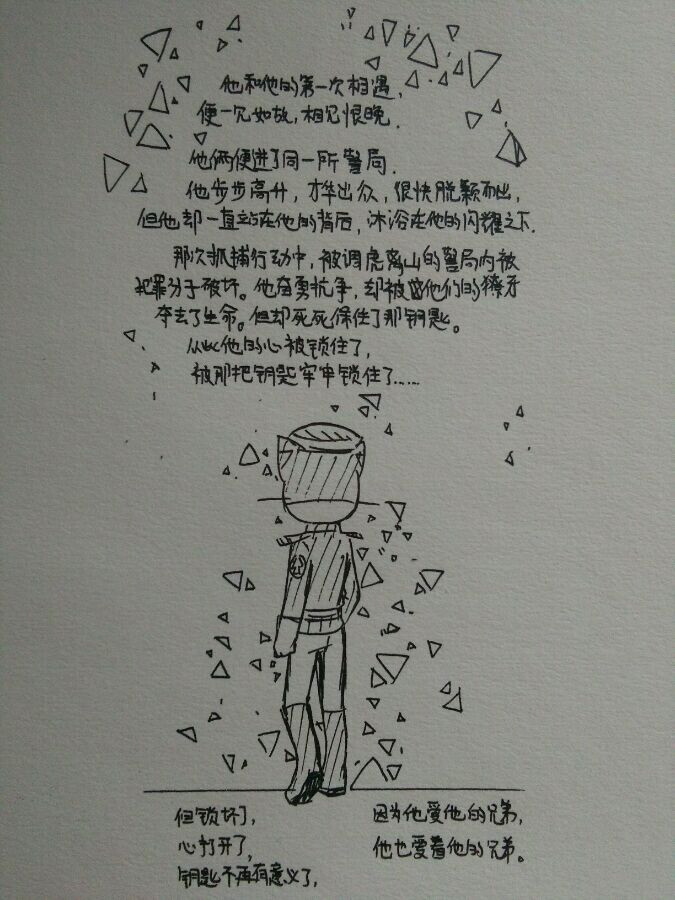 他和他的第一次相遇，
便一见如故，相见恨晚．
他俩便进了同一所警局．
他步步高升，才华出众，很快脱颖而出，
但他却一直站在他的背后，沐浴在他的闪耀之下．
那次抓捕行动中，被调虎离山的警局内被
犯罪分子破坏。他奋勇抗争，却被他们的獠牙
夺去了生命。但却死死保住了那钥匙。
从此他的心被锁住了，
被那把钥匙牢牢锁住了……
但锁坏了，
心打开了，
钥匙不再有意义了，
因为他爱他的兄弟，
他也爱着他的兄弟。